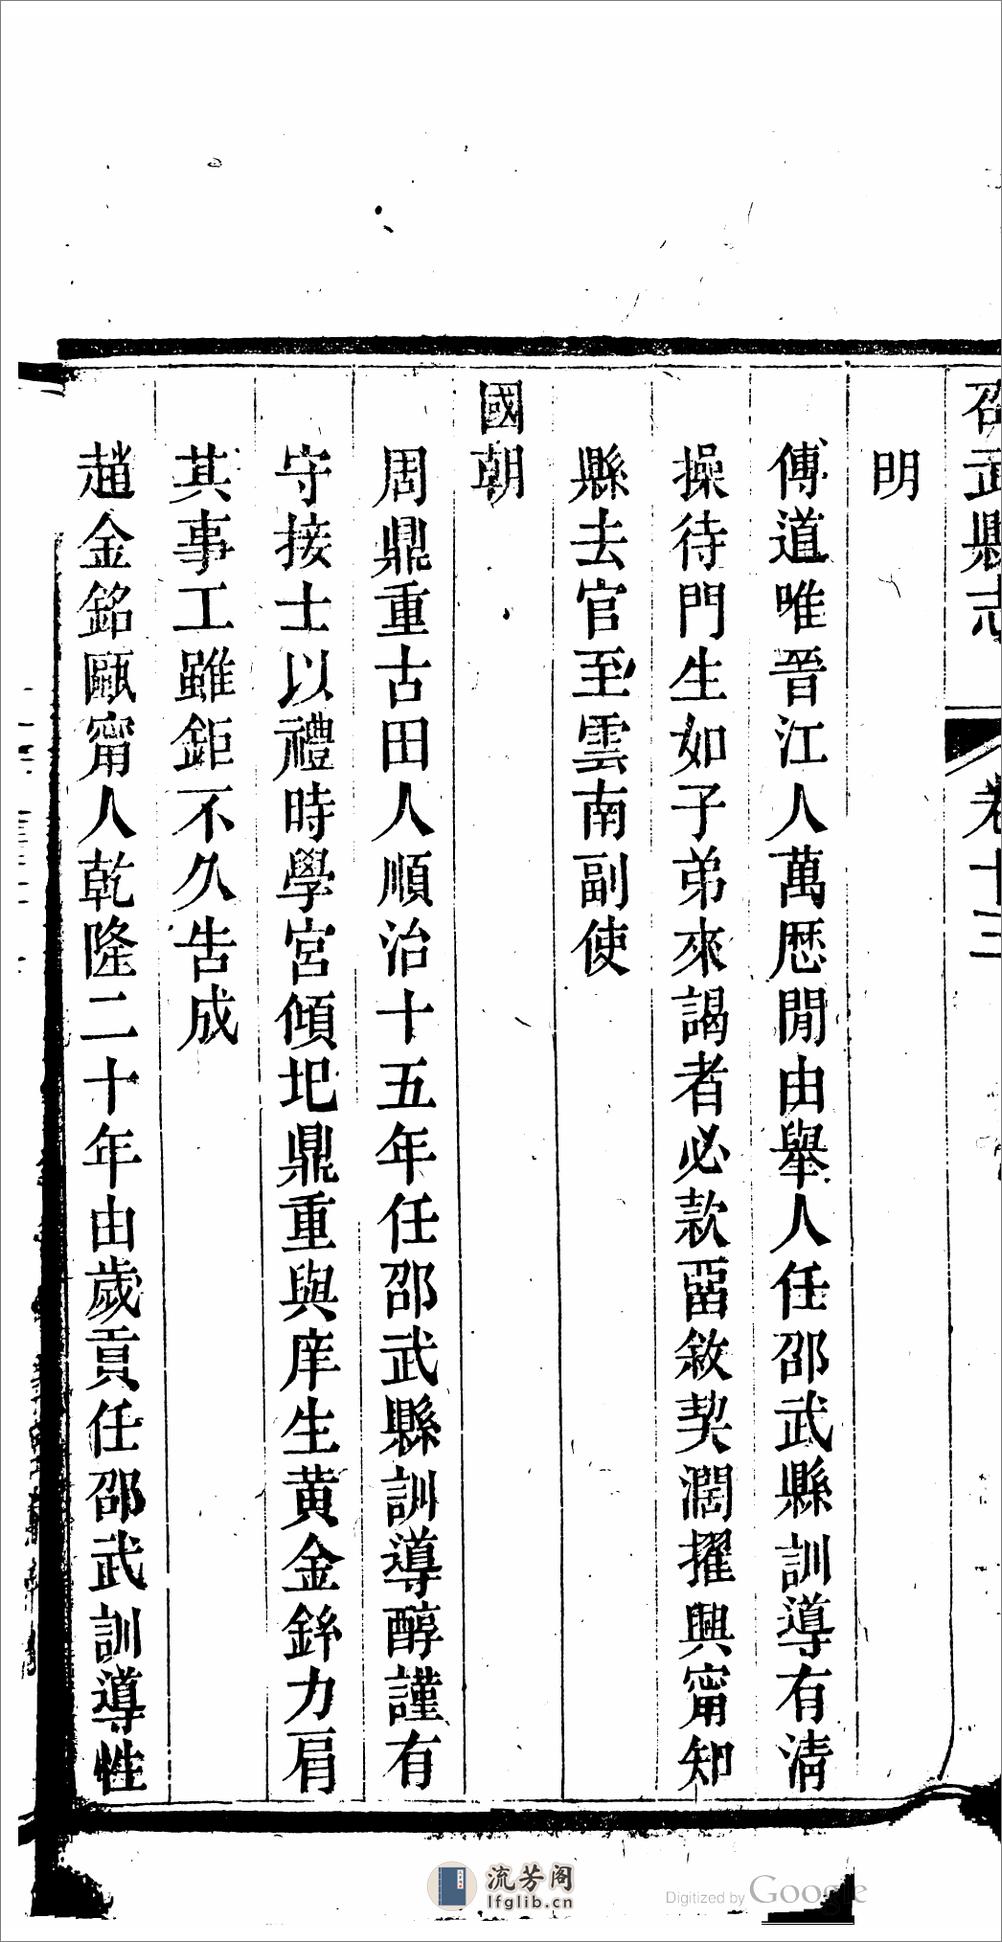 邵武縣志 卷十三
明
傅道唯晉江人萬厯閒由舉人任邵武縣訓導有清
操待門生如子弟來謁者必款畱敘契濶擢興甯知
縣去官至雲南副使
國朝
周鼎重古田人順治十五年任邵武縣訓導醇謹有
守接士以禮時學宮傾圯鼎重與庠生黄金鉌力肩
其事工雖鉅不久告成
趙金銘甌甯人乾隆二十年由歲貢任邵武訓導性
流芳阁
lfglib.cn
Digitized by Google